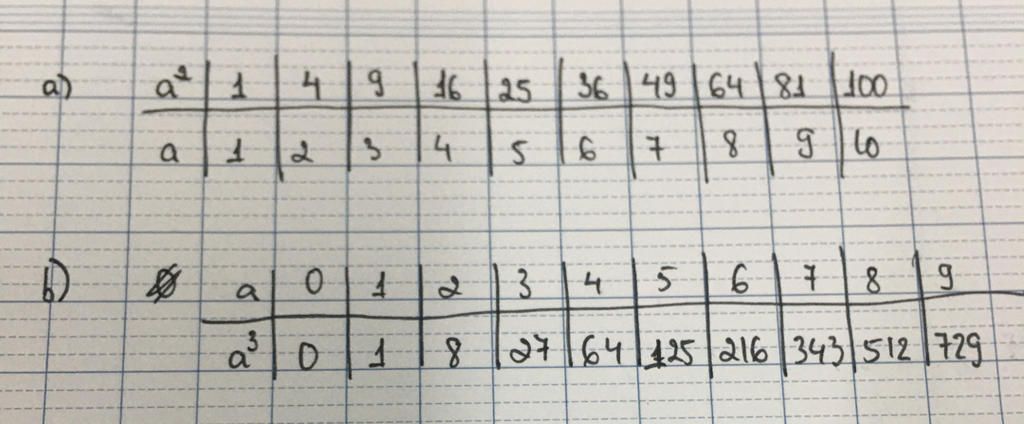 a) a² 1 4 9 16 25 36 49 64 81 100
a 1 2 3 4 5 6 7 8 9 10
b) a 0 1 2 3 4 5 6 7 8 9
a³ 0 1 8 27 64 125 216 343 512 729